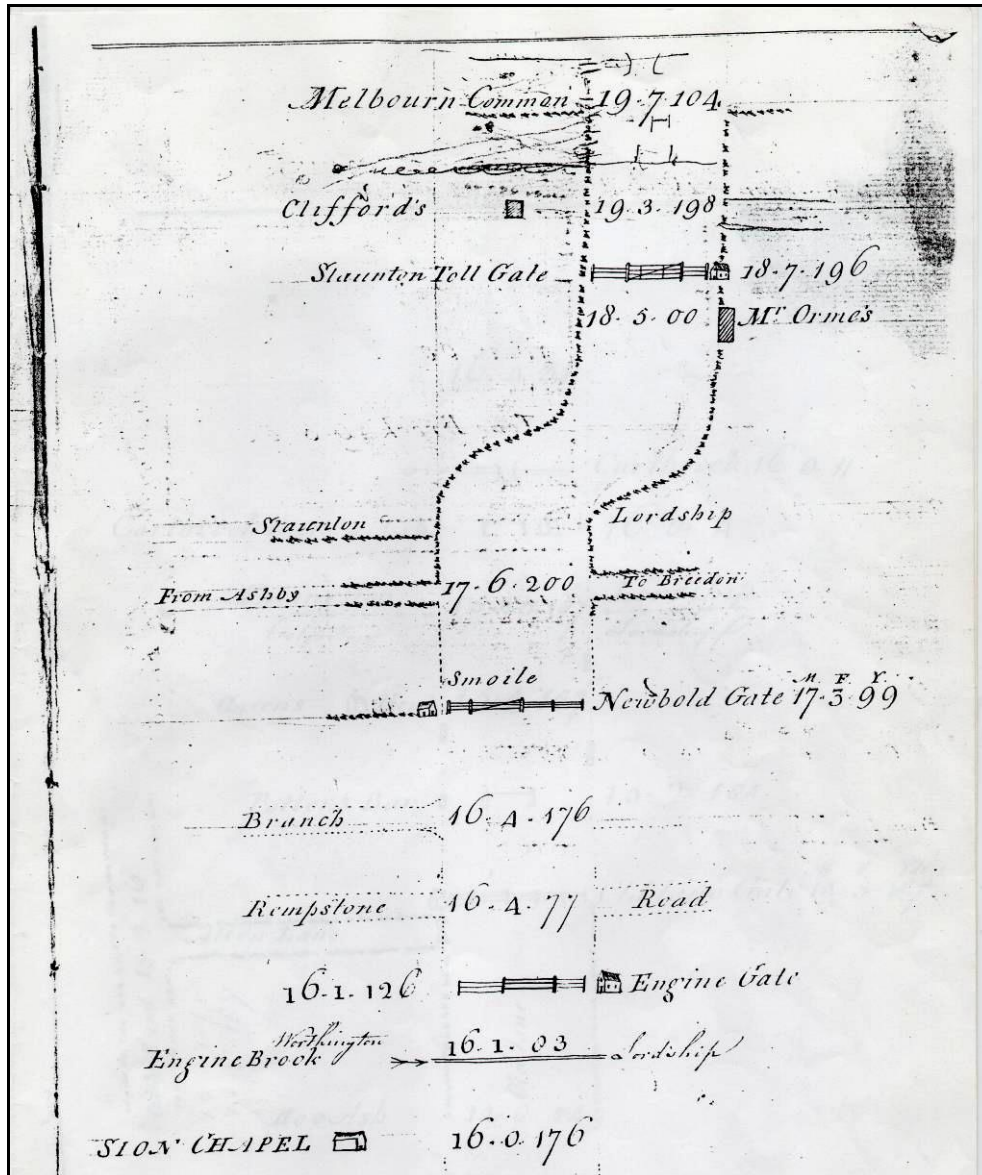 Melbourn Common 19.7.104
Clifford's 19.3.198
Staunton Toll Gate 18.7.196
18.5.00 Mr Orme's
Staunton Lordship
From Ashby 17.6.200 To Breedon
Smoile
M. F. Y.
Newbold Gate 17.3.99
Branch 16.4.176
Rempstone 16.4.77 Road
16.1.126 Engine Gate
Worthington
Engine Brook 16.1.03 Lordship
SION CHAPEL 16.0.176